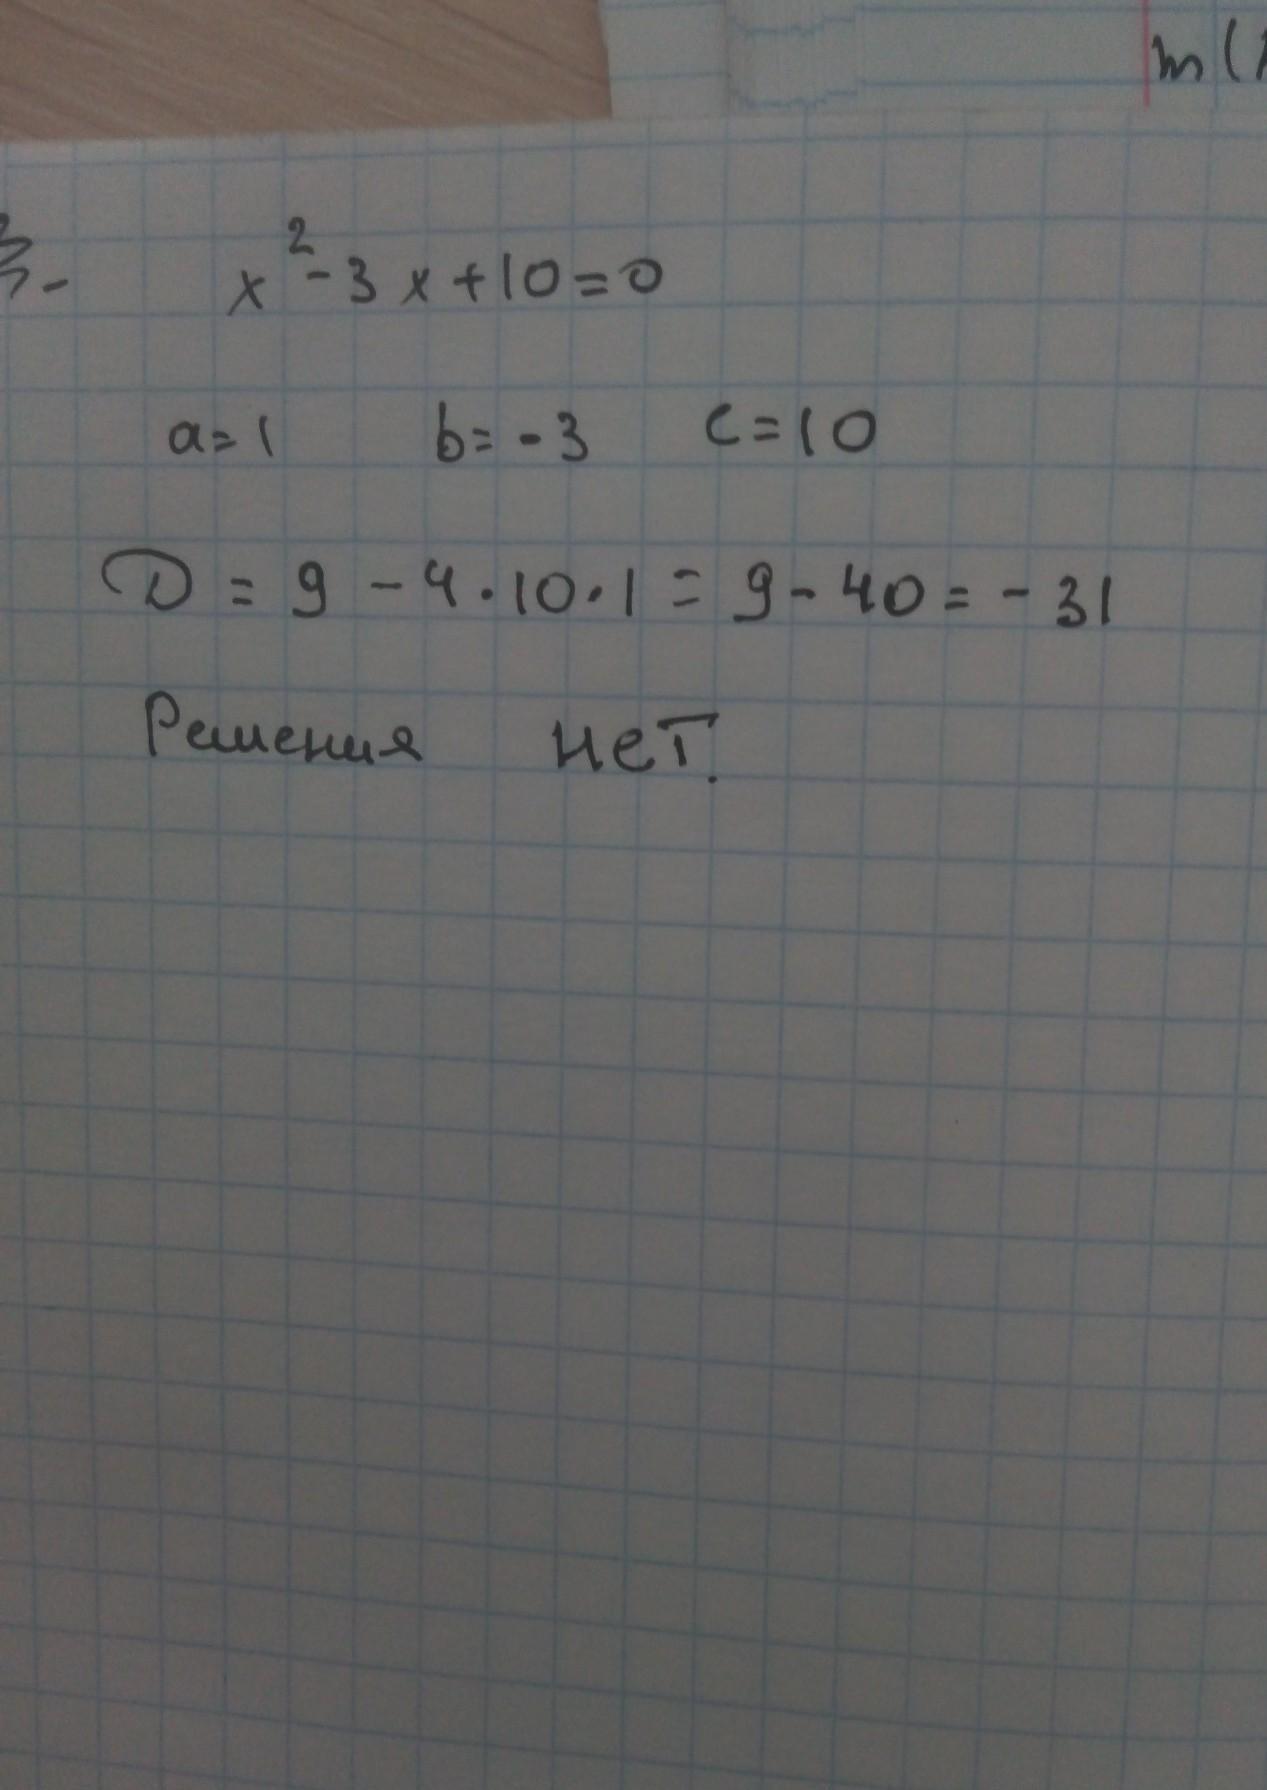 m(
3-
x² - 3x + 10 = 0
a = 1 b = -3 c = 10
D = 9 - 4 · 10 · 1 = 9 - 40 = -31
Решения нет.